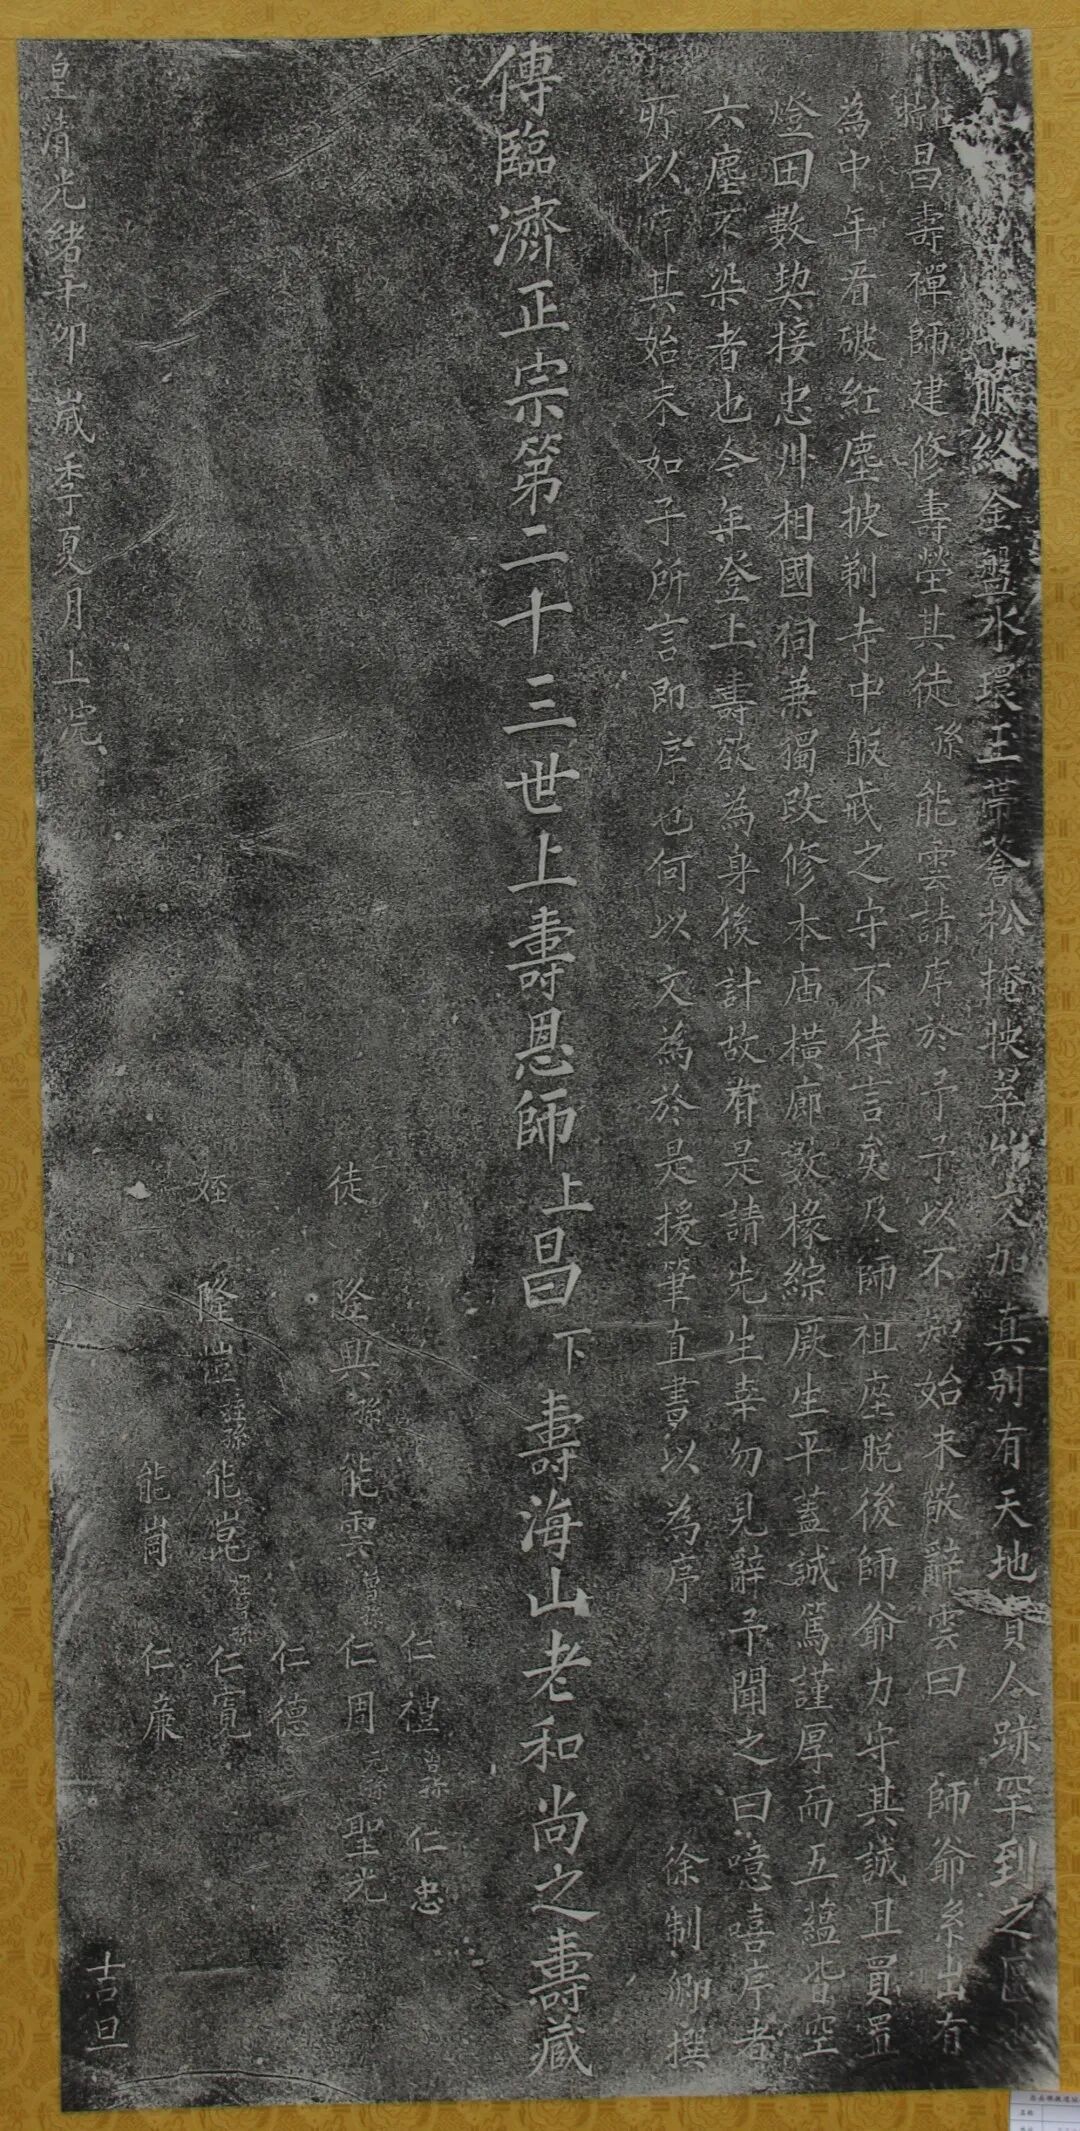 脈絡金盤水環玉帶蒼松掩映翠竹交加真別有天地實人跡罕到之區
昌壽禪師建修壽塋其徒孫能雲請序於予予以不知始末敬辭雲曰師爺系出有
為中年看破紅塵披剃寺中皈戒之守不待言矣及師祖座脫後師爺力守其誠且買置
燈田數契接忠州相國祠兼獨改修本庙橫廊数椽綜厥生平蓋誠篤謹厚而五蘊皆空
六塵不染者也今年登上壽欲為身後計故有是請先生幸勿見辭予聞之曰噫嘻序者
所以序其始末如子所言即序也何以文為於是援筆直書以為序
徐制卿撰
傳臨濟正宗第二十三世上壽恩師上昌下壽海山老和尚之壽藏
仁禮曾孫仁忠
徒隆興孫能雲曾孫仁周元孫聖光
仁德
姪隆姪孫能崑仁寬
能崗仁廉
皇清光緒辛卯歲季夏月上浣
吉旦